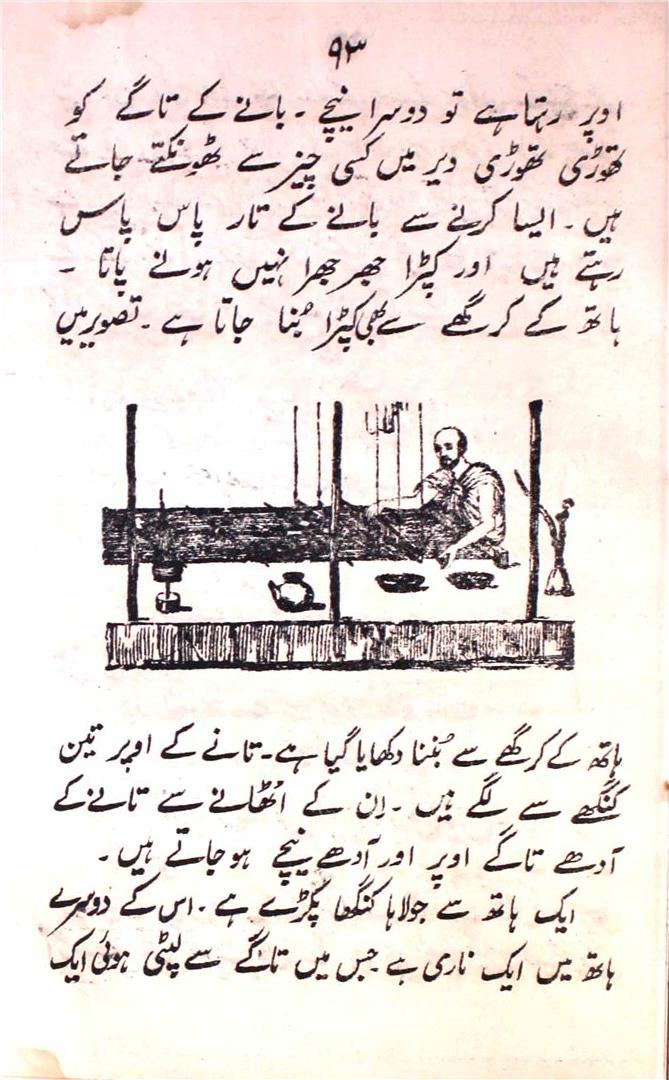 ۹۳
اوپر رہتا ہے تو دوسرا نیچے ۔ بانے کے تاگے کو
تھوڑی تھوڑی دیر میں کسی چیز سے ٹھونکتے جاتے
ہیں ۔ ایسا کرنے سے بانے کے تار پاس پاس
رہتے ہیں اور کپڑا جھر جھرا نہیں ہونے پاتا ۔
ہاتھ کے کرگھے سے بھی کپڑا بُنا جاتا ہے ۔ تصویر میں
ہاتھ کے کرگھے سے بُننا دکھایا گیا ہے ۔ تانے کے اوپر تین
کنگھے سے لگے ہیں ۔ اِن کے اُٹھانے سے تانے کے
آدھے تاگے اوپر اور آدھے نیچے ہو جاتے ہیں ۔
ایک ہاتھ سے جولاہا کنگھا پکڑے ہے ۔ اس کے دوسرے
ہاتھ میں ایک ناری ہے جس میں تاگے سے لپٹی ہوئی ایک